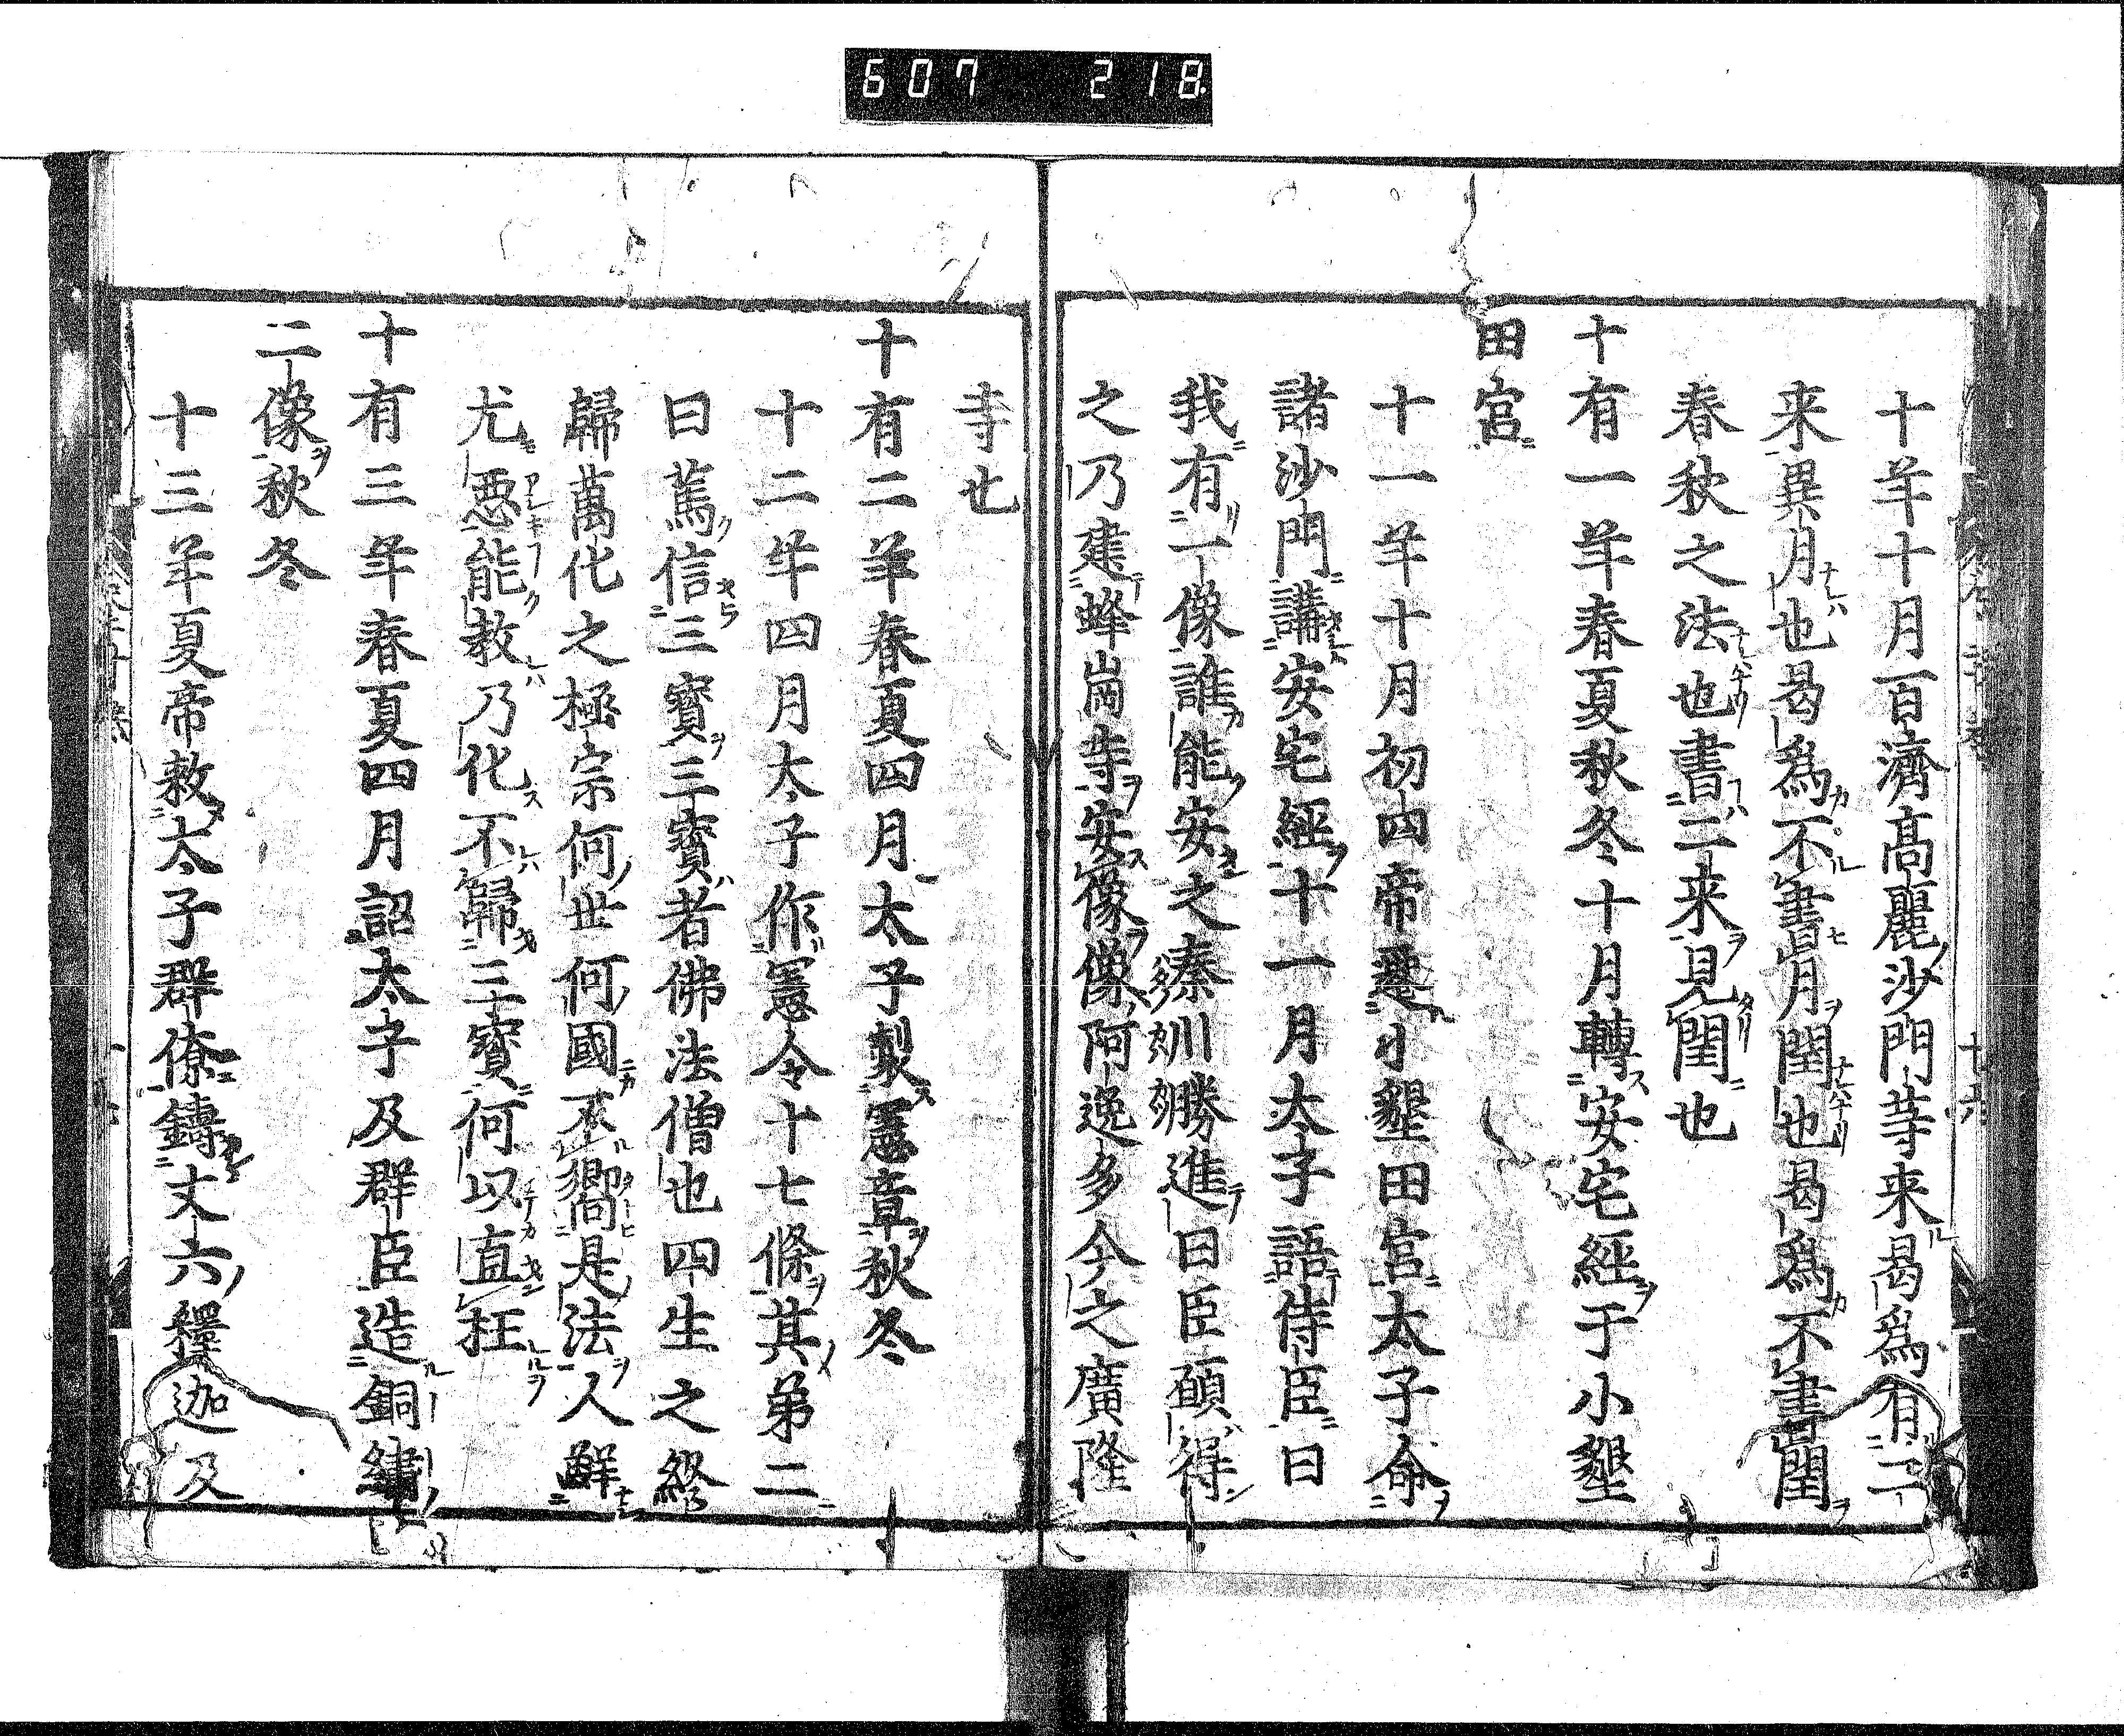 607 218
十年十月百濟髙麗沙門等来曷爲有二
来異月也曷爲不書月閏也曷爲不書閏
春秋之法也書二来見閏也
十有一年春夏秋冬十月轉安宅經于小墾
田宮
十一年十月初四帝遷小墾田宮太子命
諸沙門講安宅經十一月太子語侍臣曰
我有一像誰能安之秦川勝進曰臣願得
之乃建蜂崗寺安像像阿逸多今之廣隆
寺也
十有二年春夏四月太子製憲章秋冬
十二年四月太子作憲令十七條其第二
曰篤信三寶三寶者佛法僧也四生之終
歸萬化之極宗何世何國丕嚮是法人鮮
尤惡能敎乃化不歸三寶何以直枉
十有三年春夏四月詔太子及群臣造銅鏽
二像秋冬
十三年夏帝敕太子群僚鑄丈六釋迦及